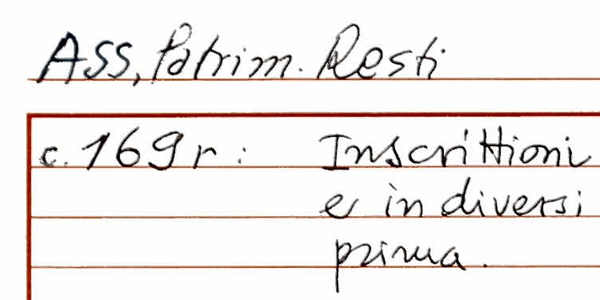 Ass, Patrim. Resti
c. 169r: Inscrittioni
e in diversi
prima.